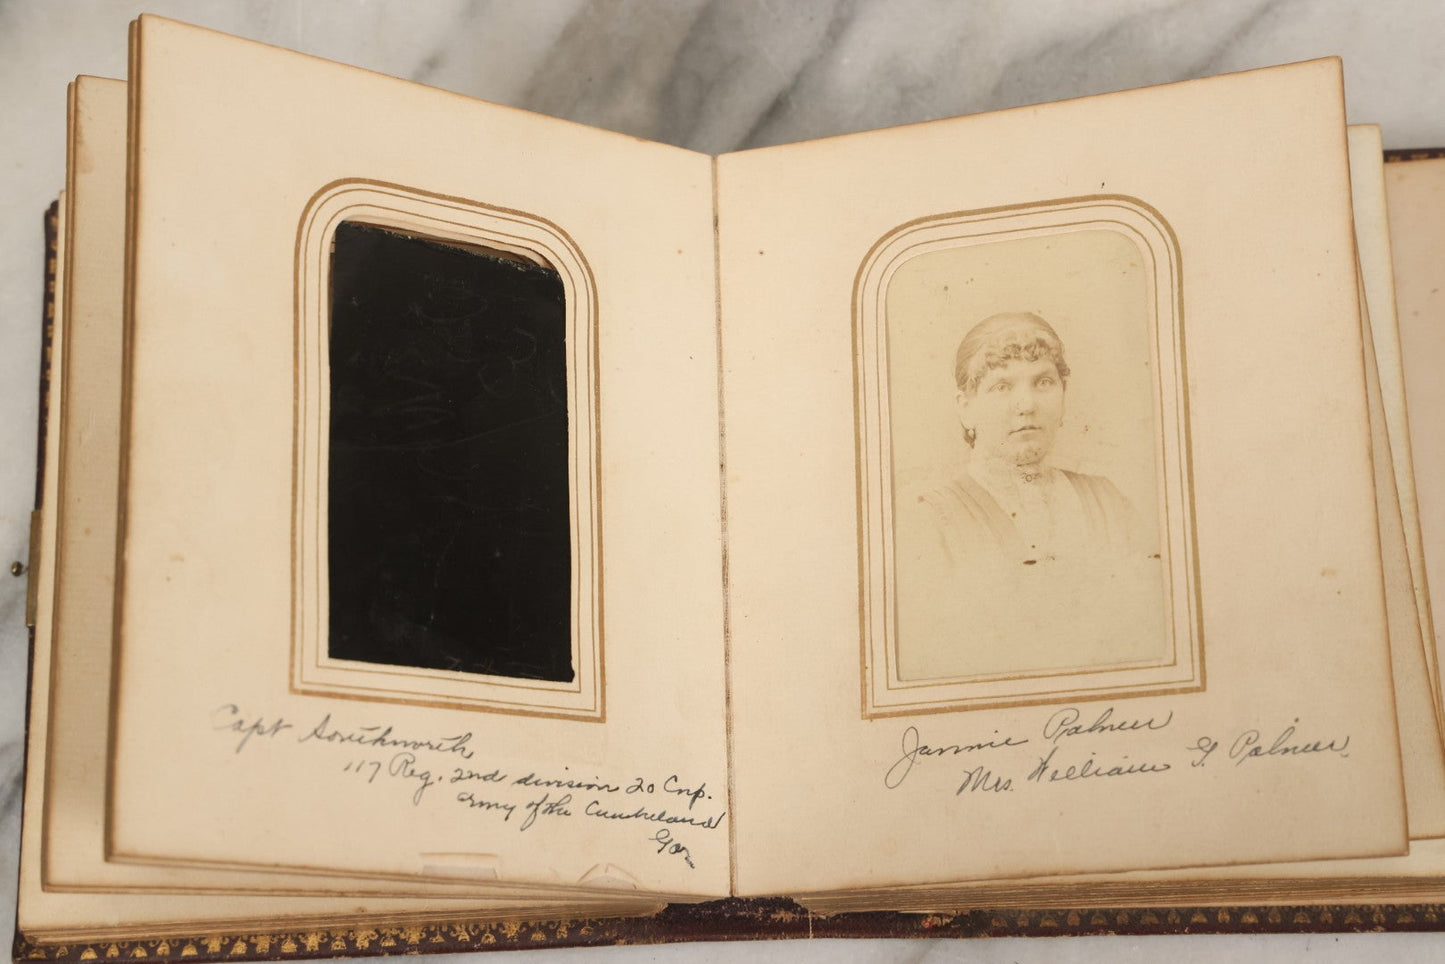 Capt Southworth
117 Reg. 2nd division 20 Corp.
army of the Cumberland
Jannie Palmer
Mrs. William G. Palmer